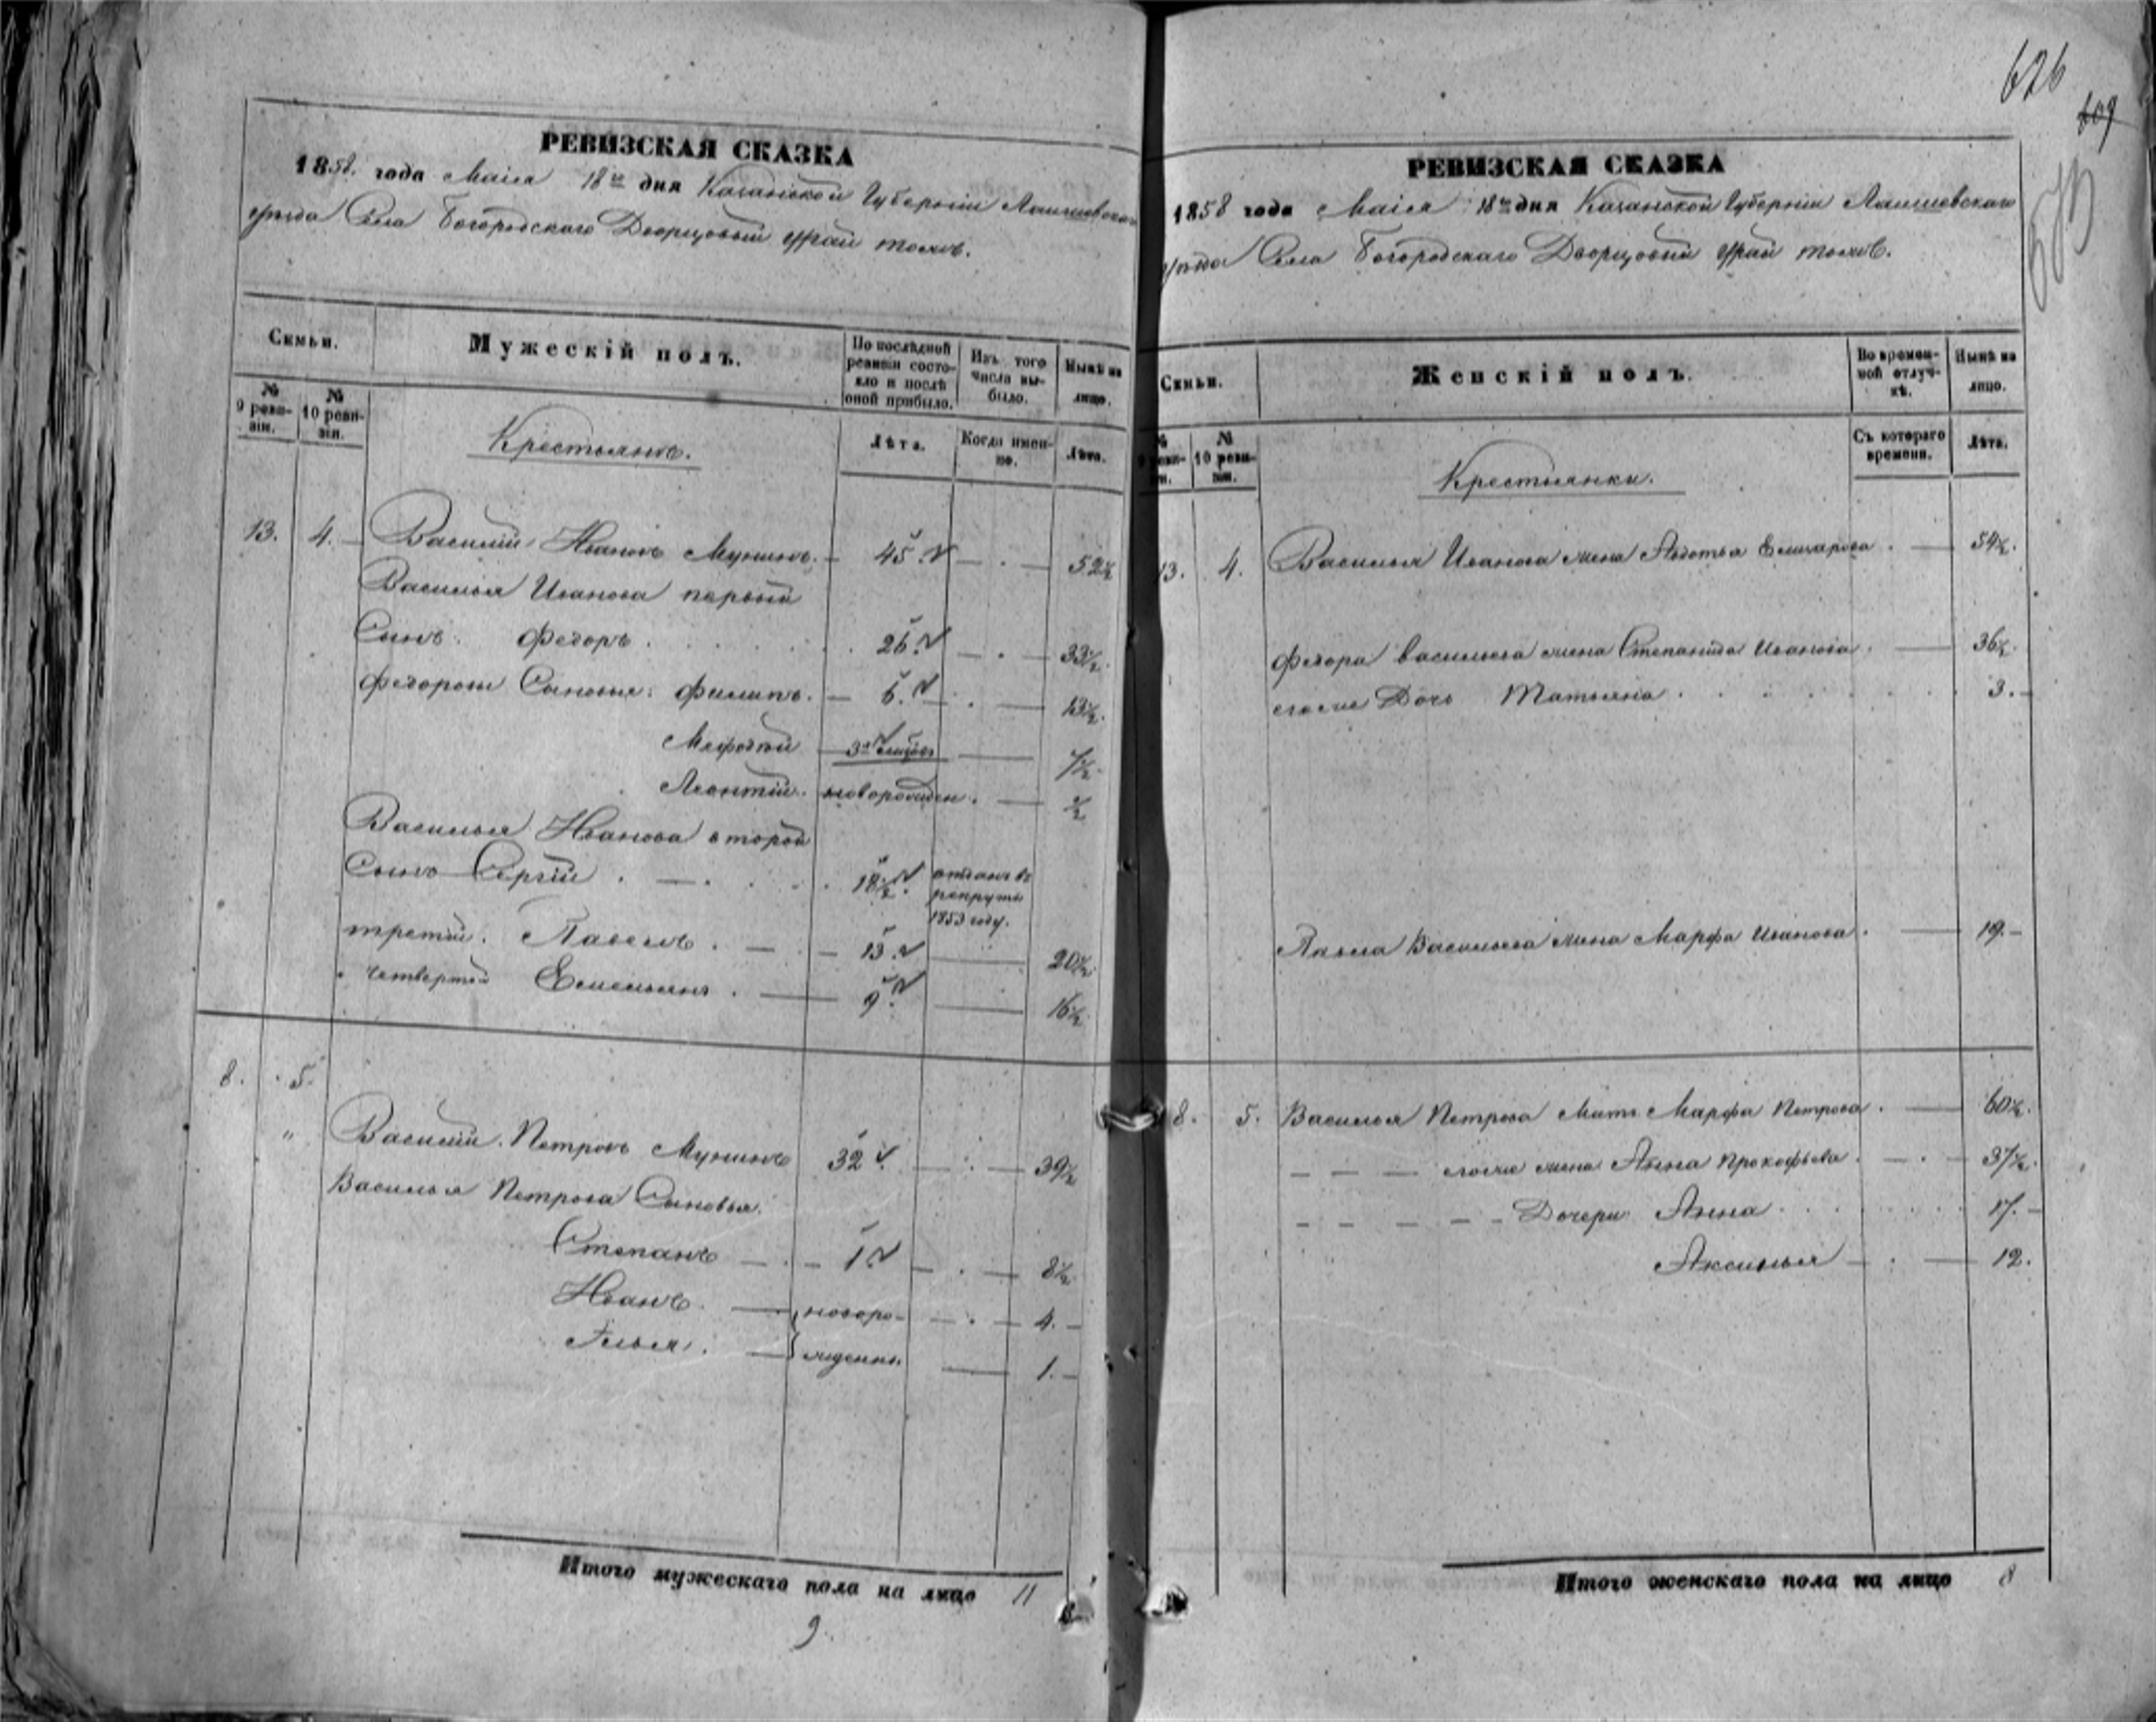 626
609
573
РЕВИЗСКАЯ СКАЗКА
1858. года Маія 18го дня Казанской Губерніи Лаишевскаго
уѣзда Села Богородскаго Дворцовый Урай тожъ.
Семьи.
Мужескій полъ.
По послѣдной ревизіи состояло и послѣ оной прибыло.
Изъ того числа выбыло.
Нынѣ на лицо.
№ 9 ревизіи.
№ 10 ревизіи.
Лѣта.
Когда именно.
Лѣта.
Крестьяне.
13. 4. Василій Ивановъ Мунинъ. 45. 52½
Василья Иванова первый
Сынъ Федоръ. 26. 33½.
Федоровы Сыновья: Филипъ. 6. 13½.
Мефодій 3х мѣсяцъ 7½
Леонтій. новорожден. ½
Василья Иванова второй
Сынъ Сергѣй. 18½. отданъ въ рекруты 1853 году.
третій. Павелъ. 13. 20½
четвертый Емельянъ. 9. 16½
8. 5.
Василій Петровъ Мунинъ 32. 39½
Василья Петрова Сыновья.
Степанъ 1. 8½
Иванъ. новоро- 4.
Илья. жденны. 1.
Итого мужескаго пола на лицо 11
9
РЕВИЗСКАЯ СКАЗКА
1858 года Маія 18го дня Казанской Губерніи Лаишевскаго
уѣзда Села Богородскаго Дворцовый Урай тожъ.
Семьи.
Женскій полъ.
Во временной отлучкѣ.
Нынѣ на лицо.
№ 10 ревизіи.
Съ котораго времени.
Лѣта.
Крестьянки.
13. 4. Василья Иванова жена Авдотья Елизарова. 54½.
Федора Васильева жена Степанида Иванова. 36½.
ево же Дочь Татьяна. 3.
Павла Васильева жена Марфа Иванова. 19.
8. 5. Василья Петрова Мать Марфа Петрова. 60½.
ево же жена Анна Прокофьева. 37½.
Дочери Анна. 17.
Аксинья 12.
Итого женскаго пола на лицо 8